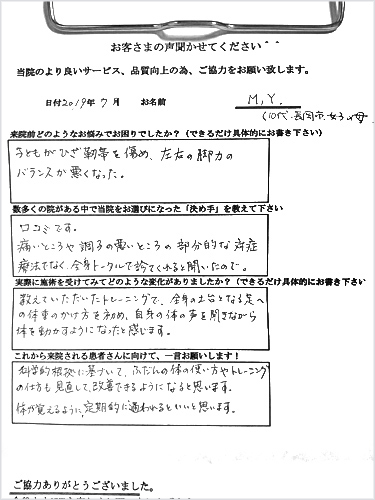 お客さまの声聞かせてください＾＾
当院のより良いサービス、品質向上の為、ご協力をお願い致します。
日付2019年7月 お名前 M.Y.
(10代・長岡市・女子の母
来院前どのようなお悩みでお困りでしたか？（できるだけ具体的にお書き下さい）
子どもがひざ靭帯を傷め、左右の脚力の
バランスが悪くなった。
数多くの院がある中で当院をお選びになった「決め手」を教えて下さい
口コミです。
痛いところや調子の悪いところの部分的な対症
療法でなく、全身トータルで診てくれると聞いたので。
実際に施術を受けてみてどのような変化がありましたか？（できるだけ具体的にお書き下さい
教えていただいたトレーニングで、全身の土台となる足へ
の体重のかけ方を初め、自身の体の声を聞きながら
体を動かすようになったと感じます。
これから来院される患者さんに向けて、一言お願いします！
科学的根拠に基づいて、ふだんの体の使い方やトレーニング
の仕方も見直して、改善できるようになると思います。
体が覚えるように、定期的に通われるといいと思います。
ご協力ありがとうございました。